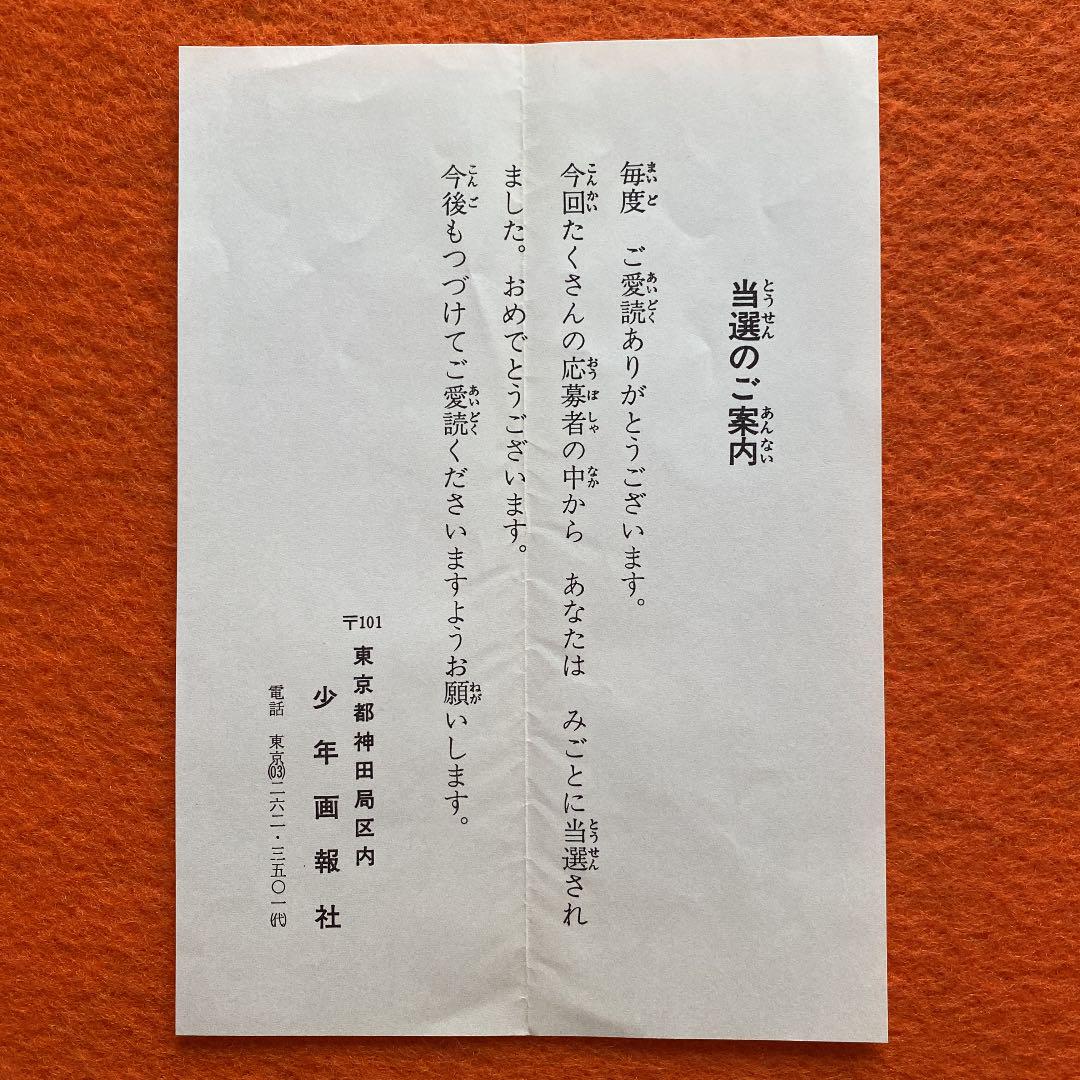 当選のご案内
毎度　ご愛読ありがとうございます。
今回たくさんの応募者の中から　あなたは　みごとに当選され
ました。おめでとうございます。
今後もつづけてご愛読くださいますようお願いします。
〒101 東京都神田局区内
少年画報社
電話　東京(03)二六二・三五〇一(代)